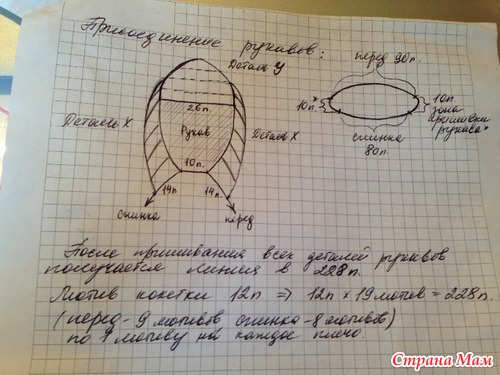 Присоединение рукавов:
Деталь У
перед 90п.
26п.
10п*
10п
зона
пришивки
рукава*
Деталь X
Рукав
Деталь X
спинка
80п.
10п.
14п
14п.
спинка
перед
После пришивания всех деталей рукавов
получается линия в 228п.
Мотив кокетки 12п => 12п x 19 мотив = 228п.
(перед - 9 мотивов спинка - 8 мотивов)
по 1 мотиву на каждое плечо.
Страна Мам